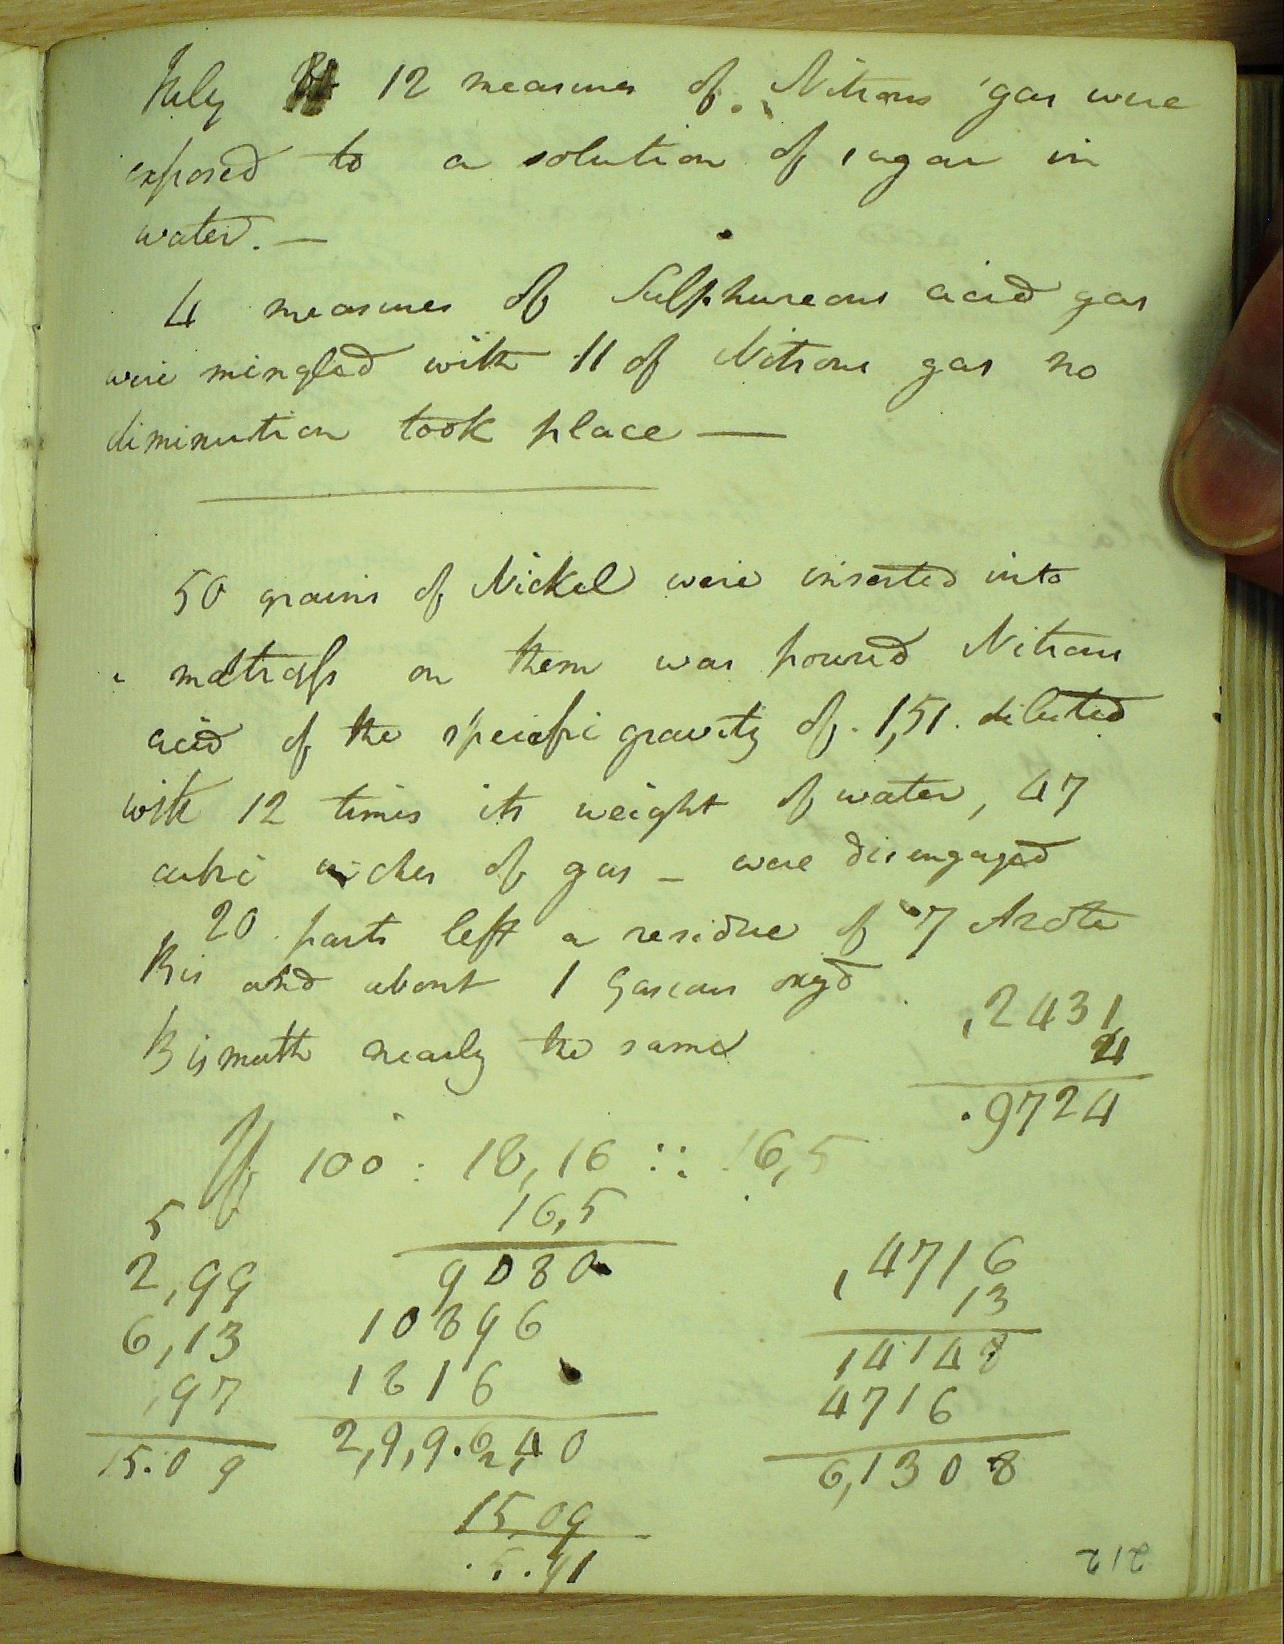 July 12 measures of Nitrous gas were
exposed to a solution of sugar in
water. —
4 measures of Sulphureous acid gas
were mingled with 11 of Nitrous gas no
diminution took place —
50 grains of Nickel were inserted into
a matrass on them was poured Nitrous
acid of the specific gravity of 1,51. diluted
with 12 times its weight of water, 47
cubic inches of gas – were disengaged
20 parts left a residue of 7 Azote
Bis and about 1 Gaseous oxyd
Bismuth nearly the same
,2431
4
.9724
If 100 : 18,16 :: 16,5
16,5
9080
10896
1816
2,9,9.6,40
15,09
5
2,99
6,13
,97
15.09
,4716
13
14148
4716
6,1308
212